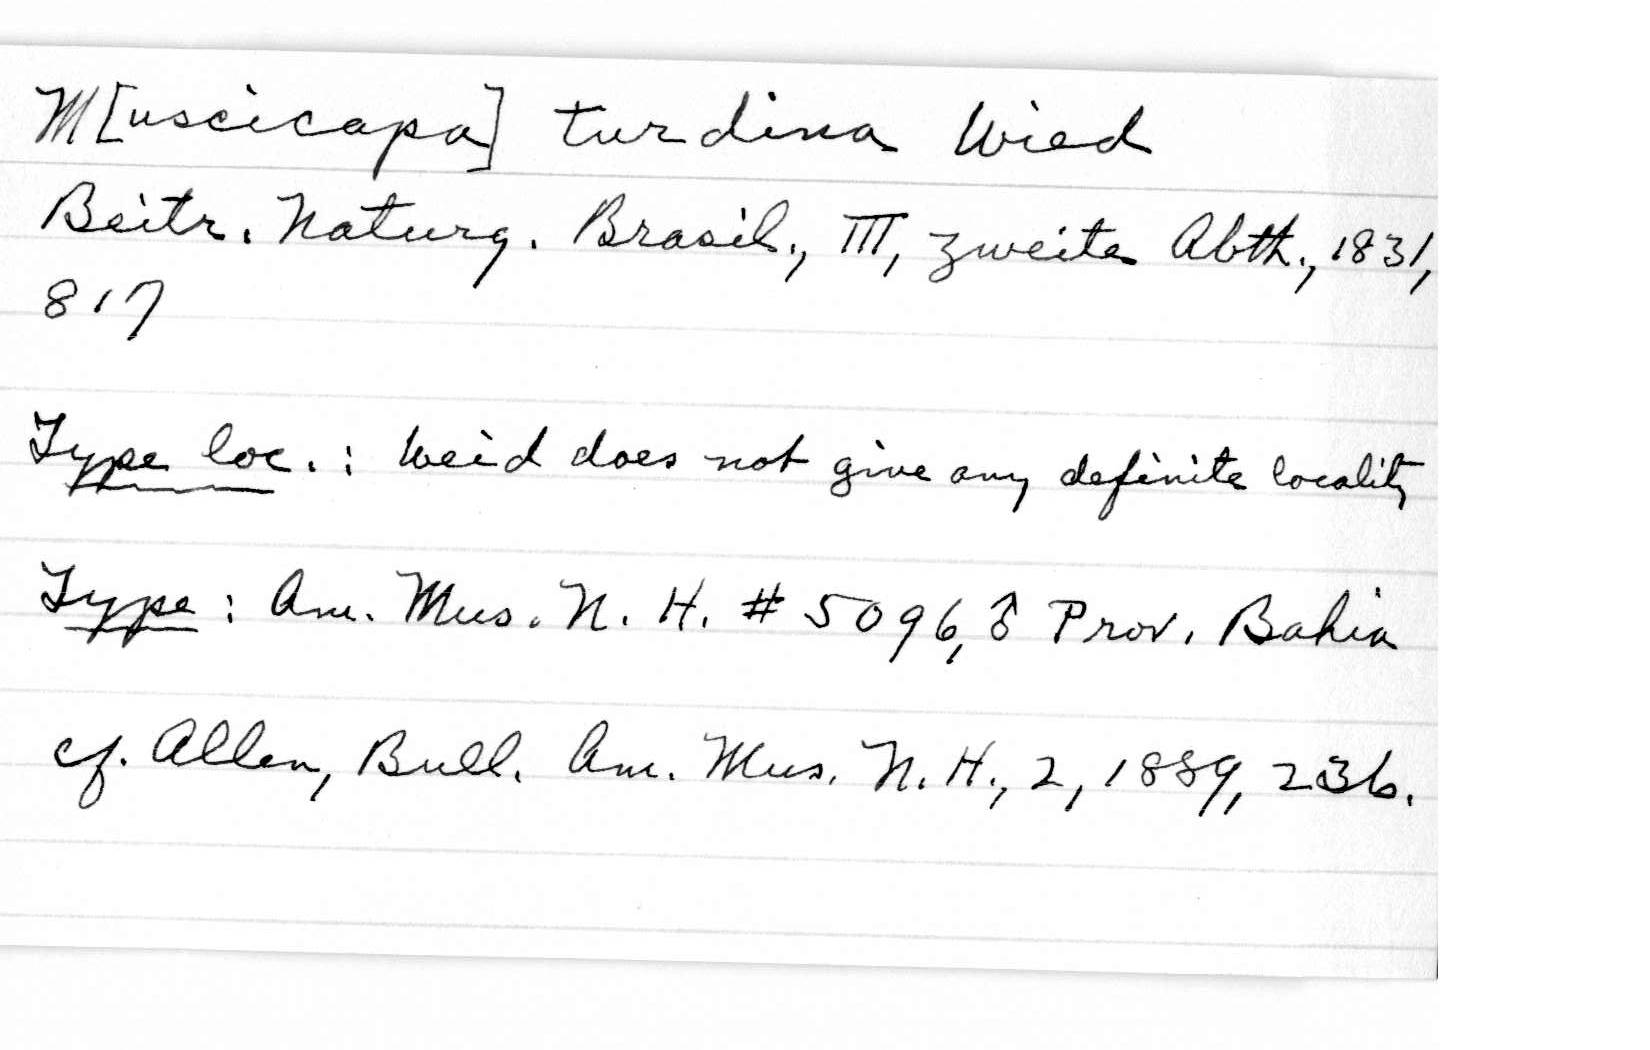 M[uscicapa] turdina Wied
Beitr. Naturg. Brasil., III, zweite Abth., 1831,
817
Type loc. : Weid does not give any definite locality
Type : Am. Mus. N. H. # 5096, ♂ Prov. Bahia
cf. Allen, Bull. Am. Mus. N. H., 2, 1889, 236.